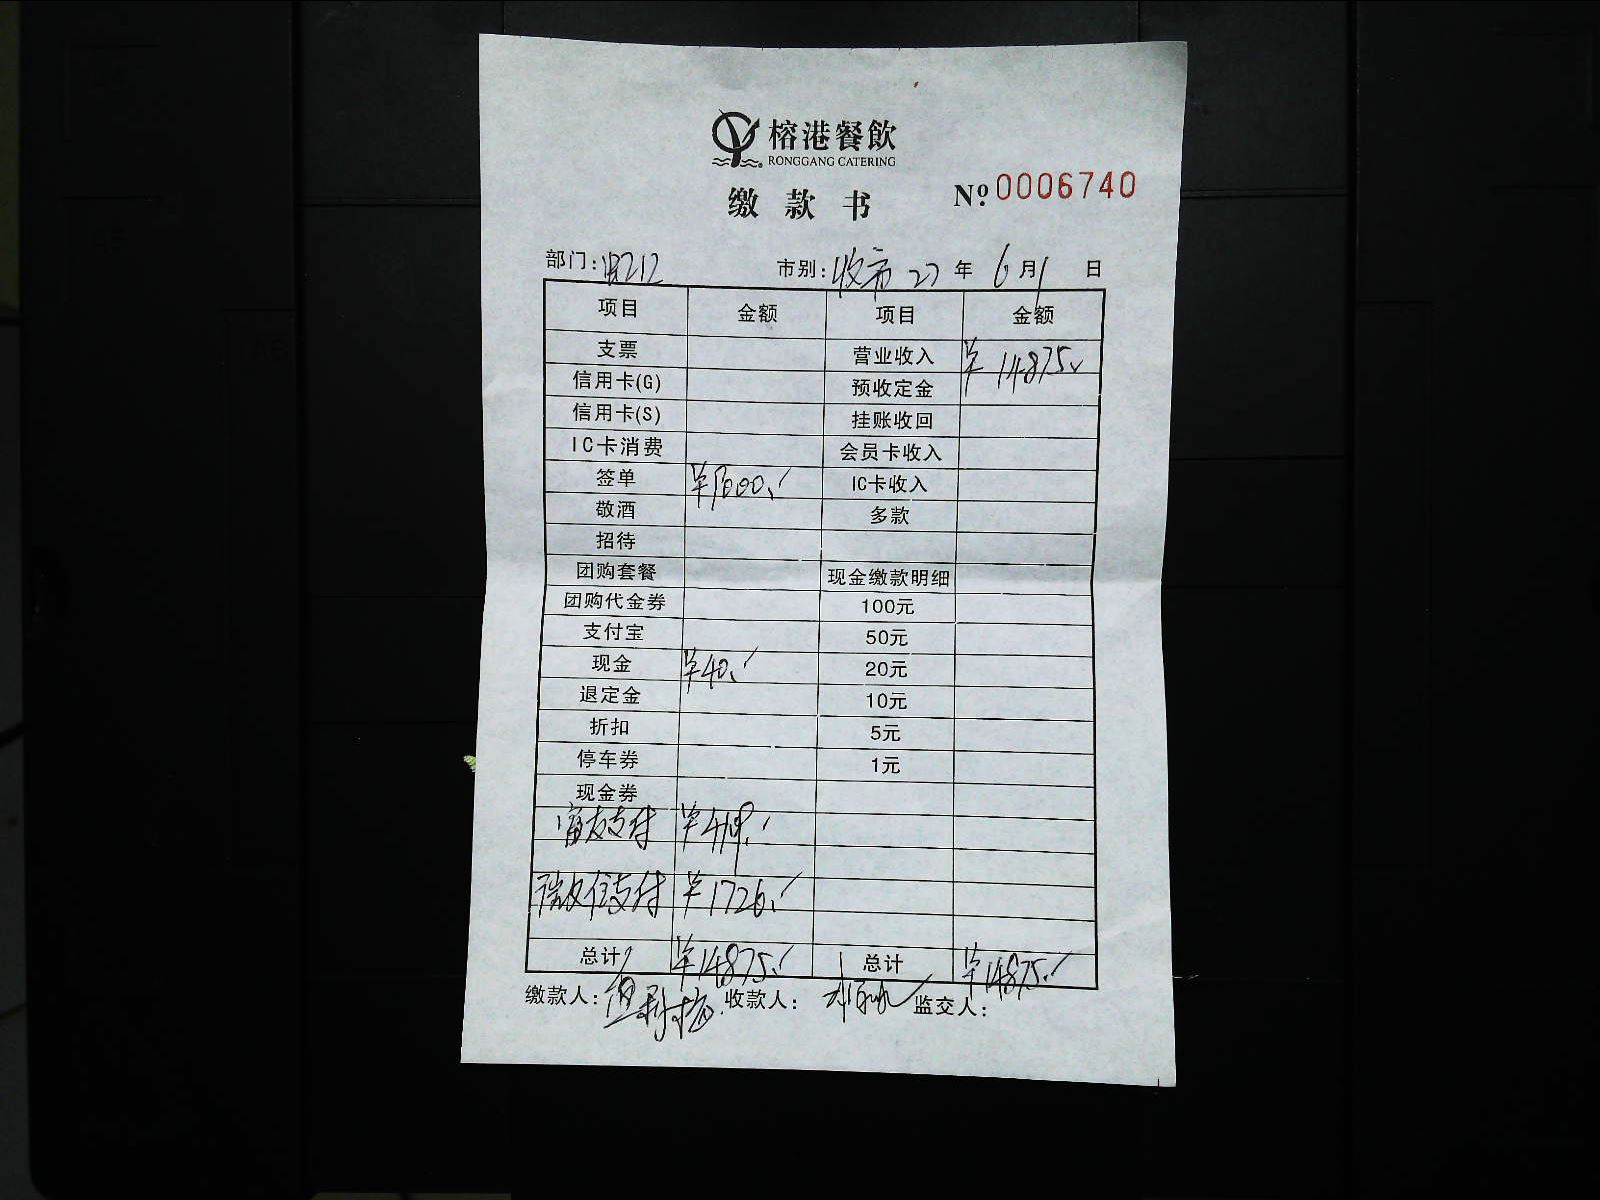 榕港餐飲
RONGGANG CATERING
缴款书 Nº 0006740
部门: 市别:收市 22 年 6 月 1 日
项目 金额 项目 金额
支票 营业收入 ¥14875.
信用卡(G) 预收定金
信用卡(S) 挂账收回
IC卡消费 会员卡收入
签单 IC卡收入
敬酒 多款
招待
团购套餐 现金缴款明细
团购代金券 100元
支付宝 50元
现金 ¥40. 20元
退定金 10元
折扣 5元
停车券 1元
现金券
富友支付
微信支付 ¥1726.
总计 ¥14875. 总计 ¥14875.
缴款人: 收款人: 监交人: